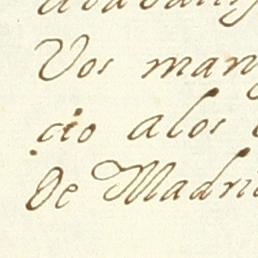 Vos man
cio alos
De Madri